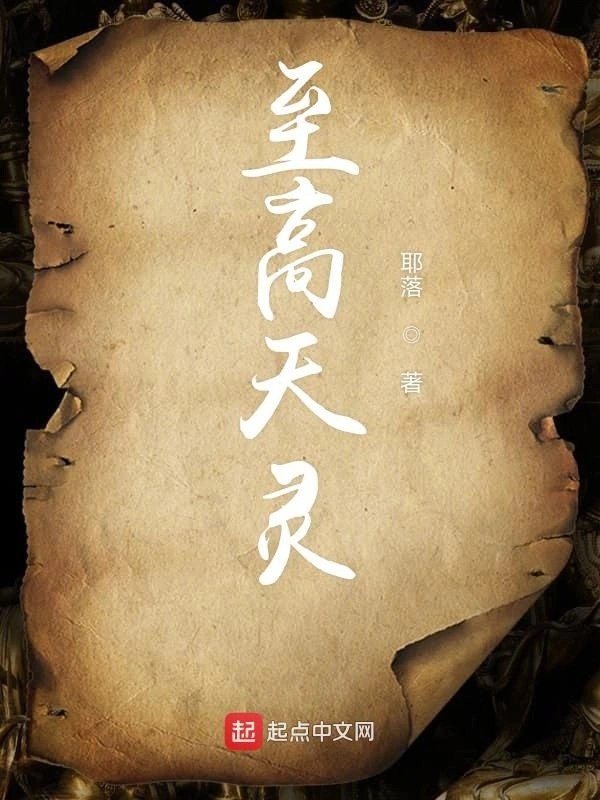 至高天灵
耶落 ◎ 著
起 起点中文网